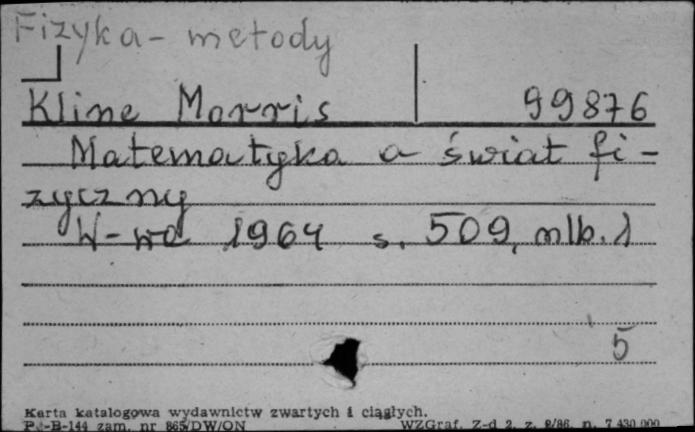 Fizyka - metody
Kline Morris 99876
Matematyka a świat fi-
zyczny
W-wa 1964 s. 509, nlb. 1
5
Karta katalogowa wydawnictw zwartych i ciągłych.
Pu-B-144 zam. nr 865/DW/ON WZGraf. Z-d 2, z. 9/86, n. 7 430 000